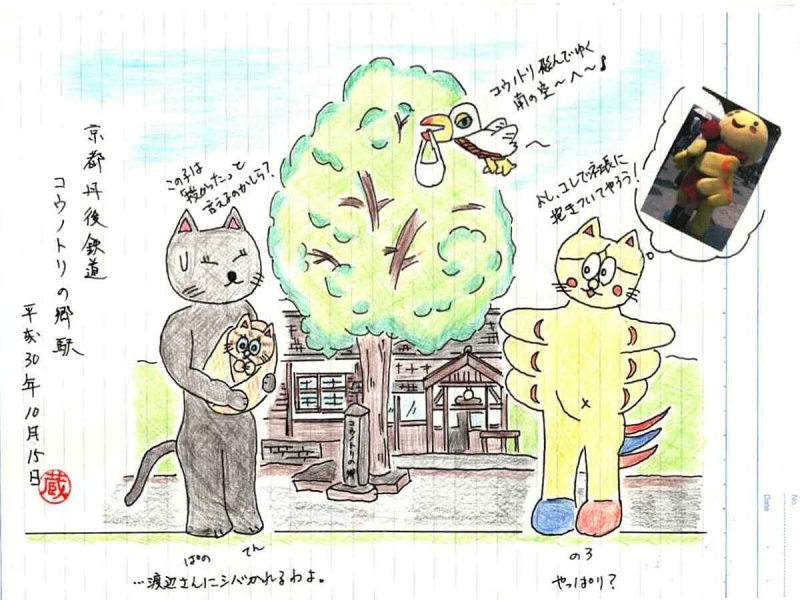 コウノトリ飛んでゆく
南の空〜へ〜♪
この子は
授かったって
言えるのかしら?
よし、コレで衣長に
抱きついてやろう!
京都丹後鉄道
コウノトリの郷駅
平成30年10月15日
蔵
コウノトリの郷
ぱの
てん
のろ
…渡辺さんにシバかれるわよ。
やっぱり?
No.
Date